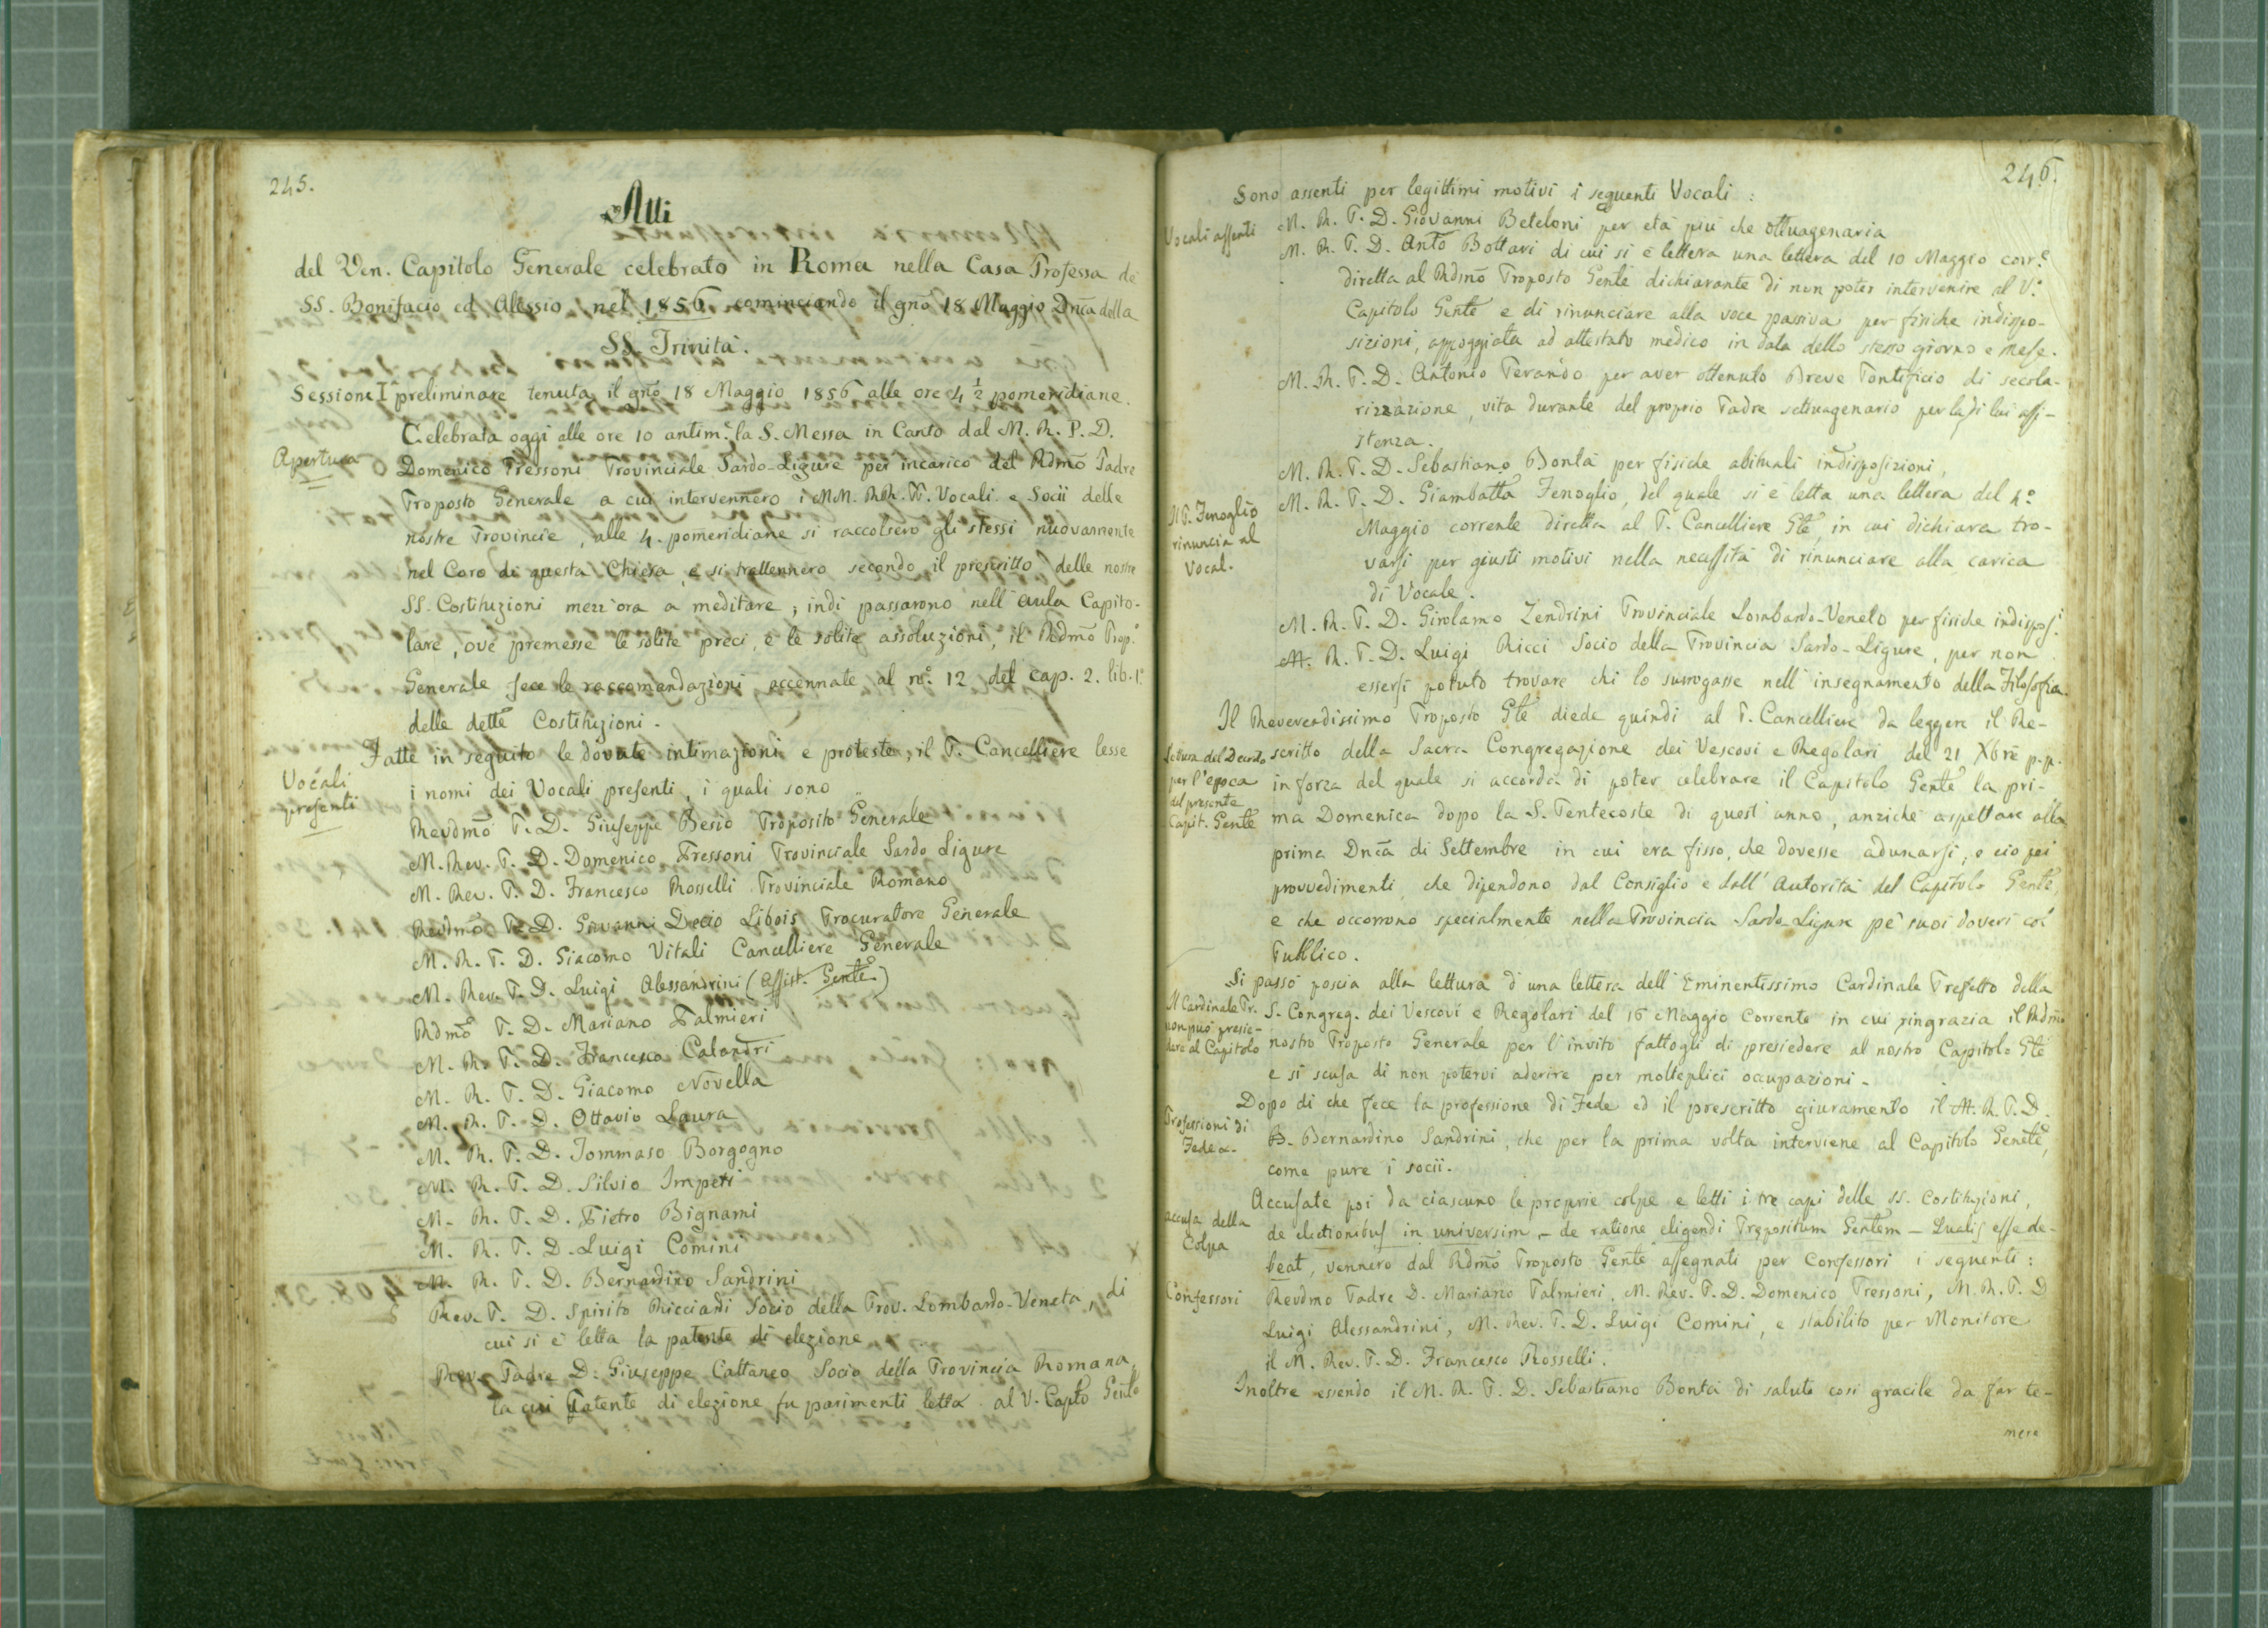 245.
Atti
del Ven. Capitolo Generale celebrato in Roma nella Casa Professa de
SS. Bonifacio ed Alessio nel 1856 cominciando il gno 18 Maggio Dnca della
SS. Trinita'.
Sessione I preliminare tenuta il gno 18 Maggio 1856 alle ore 4 1/2 pomeridiane.
Apertura
Celebrata oggi alle ore 10 antim.e la S. Messa in Canto dal M. R. P. D.
Domenico Pressoni Provinciale Sardo-Ligure per incarico del Rdmo Padre
Proposto Generale a cui intervennero i MM. RR. PP. Vocali e Socii delle
nostre Provincie, alle 4. pomeridiane si raccolsero gli stessi nuovamente
nel Coro di questa Chiesa, e si trattennero secondo il prescritto delle nostre
SS. Costituzioni mezz'ora a meditare; indi passarono nell'aula Capito-
lare, ove premesse le solite preci, e le solite assoluzioni, il Rdmo Prop.o
Generale fece le raccomandazioni accennate al n.o 12 del cap. 2. lib. 1.o
delle dette Costituzioni.
Fatte in seguito le dovute intimazioni e proteste, il P. Cancelliere lesse
Vocali
presenti
i nomi dei Vocali presenti, i quali sono
Revdmo P. D. Giuseppe Besio Proposito Generale
M. Rev. P. D. Domenico Pressoni Provinciale Sardo Ligure
M. Rev. P. D. Francesco Rosselli Provinciale Romano
Revdmo P. D. Giovanni Decio Libois Procuratore Generale
M. R. P. D. Giacomo Vitali Cancelliere Generale
M. Rev. P. D. Luigi Alessandrini (Assist. Gente)
Rdmo P. D. Mariano Palmieri
M. R. P. D. Francesco Calandri
M. R. P. D. Giacomo Novella
M. R. P. D. Ottavio Laura
M. R. P. D. Tommaso Borgogno
M. R. P. D. Silvio Imperi
M. R. P. D. Pietro Bignami
M. R. P. D. Luigi Comini
M. R. P. D. Bernardino Sandrini
Rev. P. D. Spirito Ricciardi Socio della Prov. Lombardo-Veneta, di
cui si è letta la patente di elezione
Rev. Padre D. Giuseppe Cattaneo Socio della Provincia Romana,
la cui Patente di elezione fu parimenti letta al V. Capto Gente
246.
Sono assenti per legittimi motivi i seguenti Vocali:
Vocali assenti
M. R. P. D. Giovanni Beteloni per età più che ottuagenaria
M. R. P. D. Anto Bottari di cui si è lettera una lettera del 10 Maggio corr.e
diretta al Rdmo Proposto Gente dichiarante di non poter intervenire al V.e
Capitolo Gente e di rinunciare alla voce passiva per fisiche indispo-
sizioni, appoggiata ad attestato medico in data dello stesso giorno e mese.
M. R. P. D. Antonio Ferando per aver ottenuto Breve Pontificio di secola-
rizzazione, vita durante del proprio Padre settuagenario per la di lui assi-
stenza.
M. R. P. D. Sebastiano Bontà per fisiche abituali indisposizioni,
Il P. Fenoglio
rinuncia al
Vocal.
M. R. P. D. Giambatta Fenoglio, del quale si è letta una lettera del 4.o
Maggio corrente diretta al P. Cancelliere Gte, in cui dichiara tro-
varsi per giusti motivi nella necessità di rinunciare alla carica
di Vocale.
M. R. P. D. Girolamo Zendrini Provinciale Lombardo-Veneto per fisiche indispos.i
M. R. P. D. Luigi Ricci Socio della Provincia Sardo-Ligure, per non
essersi potuto trovare chi lo surrogasse nell'insegnamento della Filosofia.
Il Reverendissimo Proposto Gte diede quindi al P. Cancelliere da leggere il Re-
Lettura del Decreto
per l'epoca
del presente
Capit. Gente
scritto della Sacra Congregazione dei Vescovi e Regolari del 21 Xbre p.p.
in forza del quale si accorda di poter celebrare il Capitolo Gente la pri-
ma Domenica dopo la S. Pentecoste di quest'anno, anziché aspettare alla
prima Dnca di Settembre in cui era fisso, che dovesse adunarsi, e ciò pei
provvedimenti, che dipendono dal Consiglio e dall'Autorità del Capitolo Gente,
e che occorrono specialmente nella Provincia Sardo-Ligure pe' suoi doveri col
Pubblico.
Si passò poscia alla lettura d'una lettera dell'Eminentissimo Cardinale Prefetto della
Il Cardinale Pr.
non può presie-
dere al Capitolo
S. Congreg. dei Vescovi e Regolari del 16 Maggio corrente in cui ringrazia il Rdmo
nostro Proposto Generale per l'invito fattogli di presiedere al nostro Capitolo Gte
e si scusa di non potervi aderire per molteplici occupazioni.
Professioni di
Fede &.
Dopo di che fece la professione di Fede ed il prescritto giuramento il M. R. P. D.
B. Bernardino Sandrini, che per la prima volta interviene al Capitolo Genete,
come pure i socii.
accusa della
Colpa
Accusate poi da ciascuno le proprie colpe e letti i tre capi delle SS. Costituzioni,
de electionibus in universim, - de ratione eligendi Prepositum Gentem - Qualis esse de-
beat, vennero dal Rdmo Proposto Gente assegnati per Confessori i seguenti:
Confessori
Revdmo Padre D. Mariano Palmieri, M. Rev. P. D. Domenico Pressoni, M. R. P. D
Luigi Alessandrini, M. Rev. P. D. Luigi Comini, e stabilito per Monitore
il M. Rev. P. D. Francesco Rosselli.
Inoltre essendo il M. R. P. D. Sebastiano Bontà di salute così gracile da far te-
mere